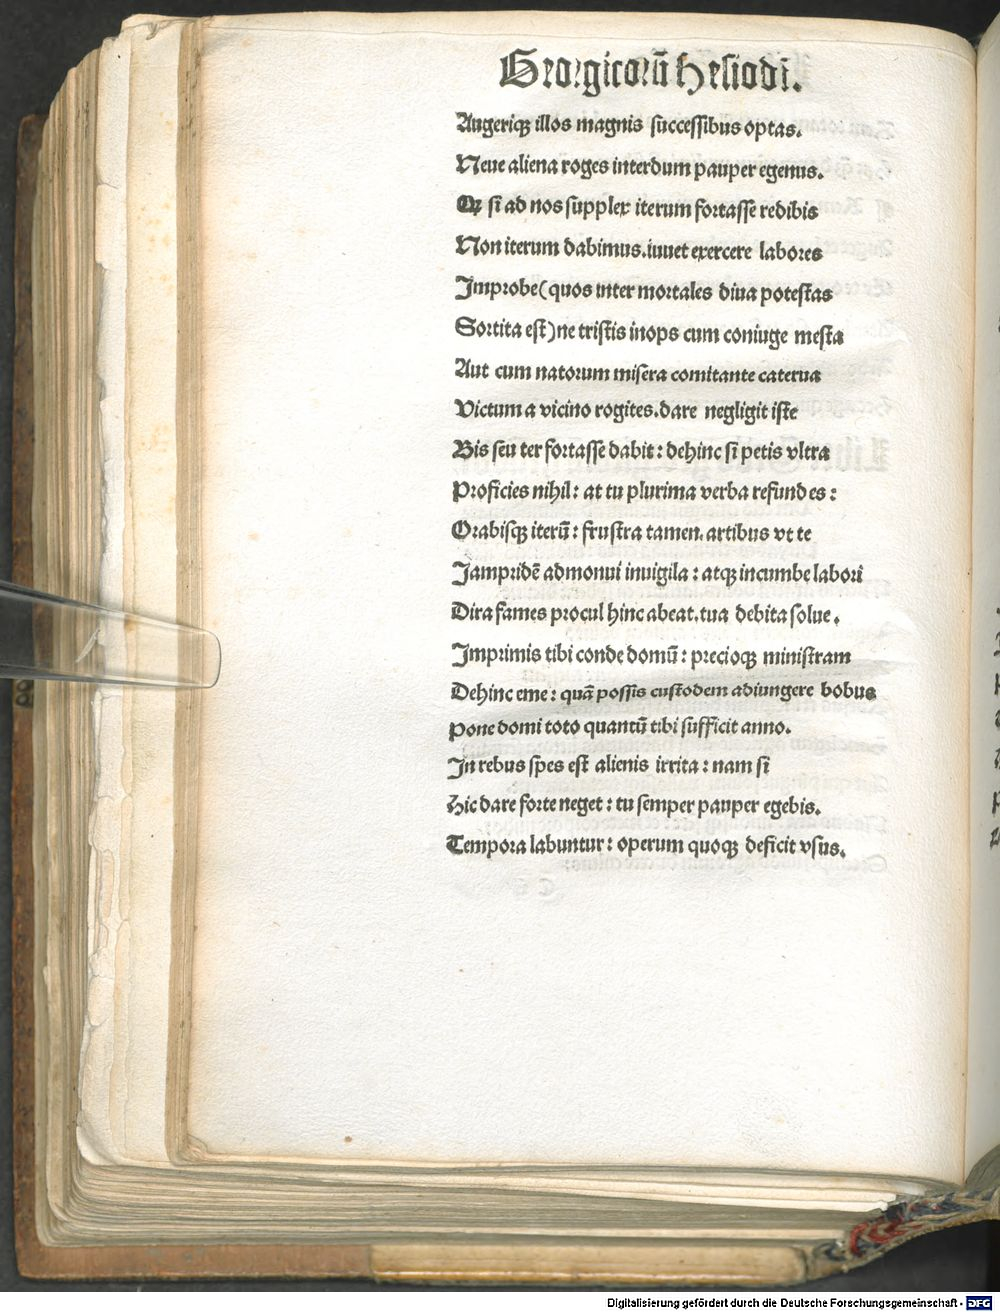 Georgicorũ Hesiodi.
Augeriqꝫ illos magnis successibus optas.
Neue aliena roges interdum pauper egenus.
Qꝛ si ad nos supplex iterum fortasse redibis
Non iterum dabimus. iuuet exercere labores
Improbe (quos inter mortales diua potestas
Sortita est) ne tristis inops cum coniuge mesta
Aut cum natorum misera comitante caterua
Victum a vicino rogites. dare negligit iste
Bis seu ter fortasse dabit : dehinc si petis vltra
Proficies nihil : at tu plurima verba refundes :
Orabisqꝫ iterũ : frustra tamen. artibus vt te
Iampridẽ admonui inuigila : atqꝫ incumbe labori
Dira fames procul hinc abeat. tua debita solue.
Imprimis tibi conde domũ : precioqꝫ ministram
Dehinc eme : quã possis custodem adiungere bobus
Pone domi toto quantũ tibi sufficit anno.
In rebus spes est alienis irrita : nam si
Hic dare forte neget : tu semper pauper egebis.
Tempora labuntur : operum quoqꝫ deficit vsus.
Digitalisierung gefördert durch die Deutsche Forschungsgemeinschaft - DFG